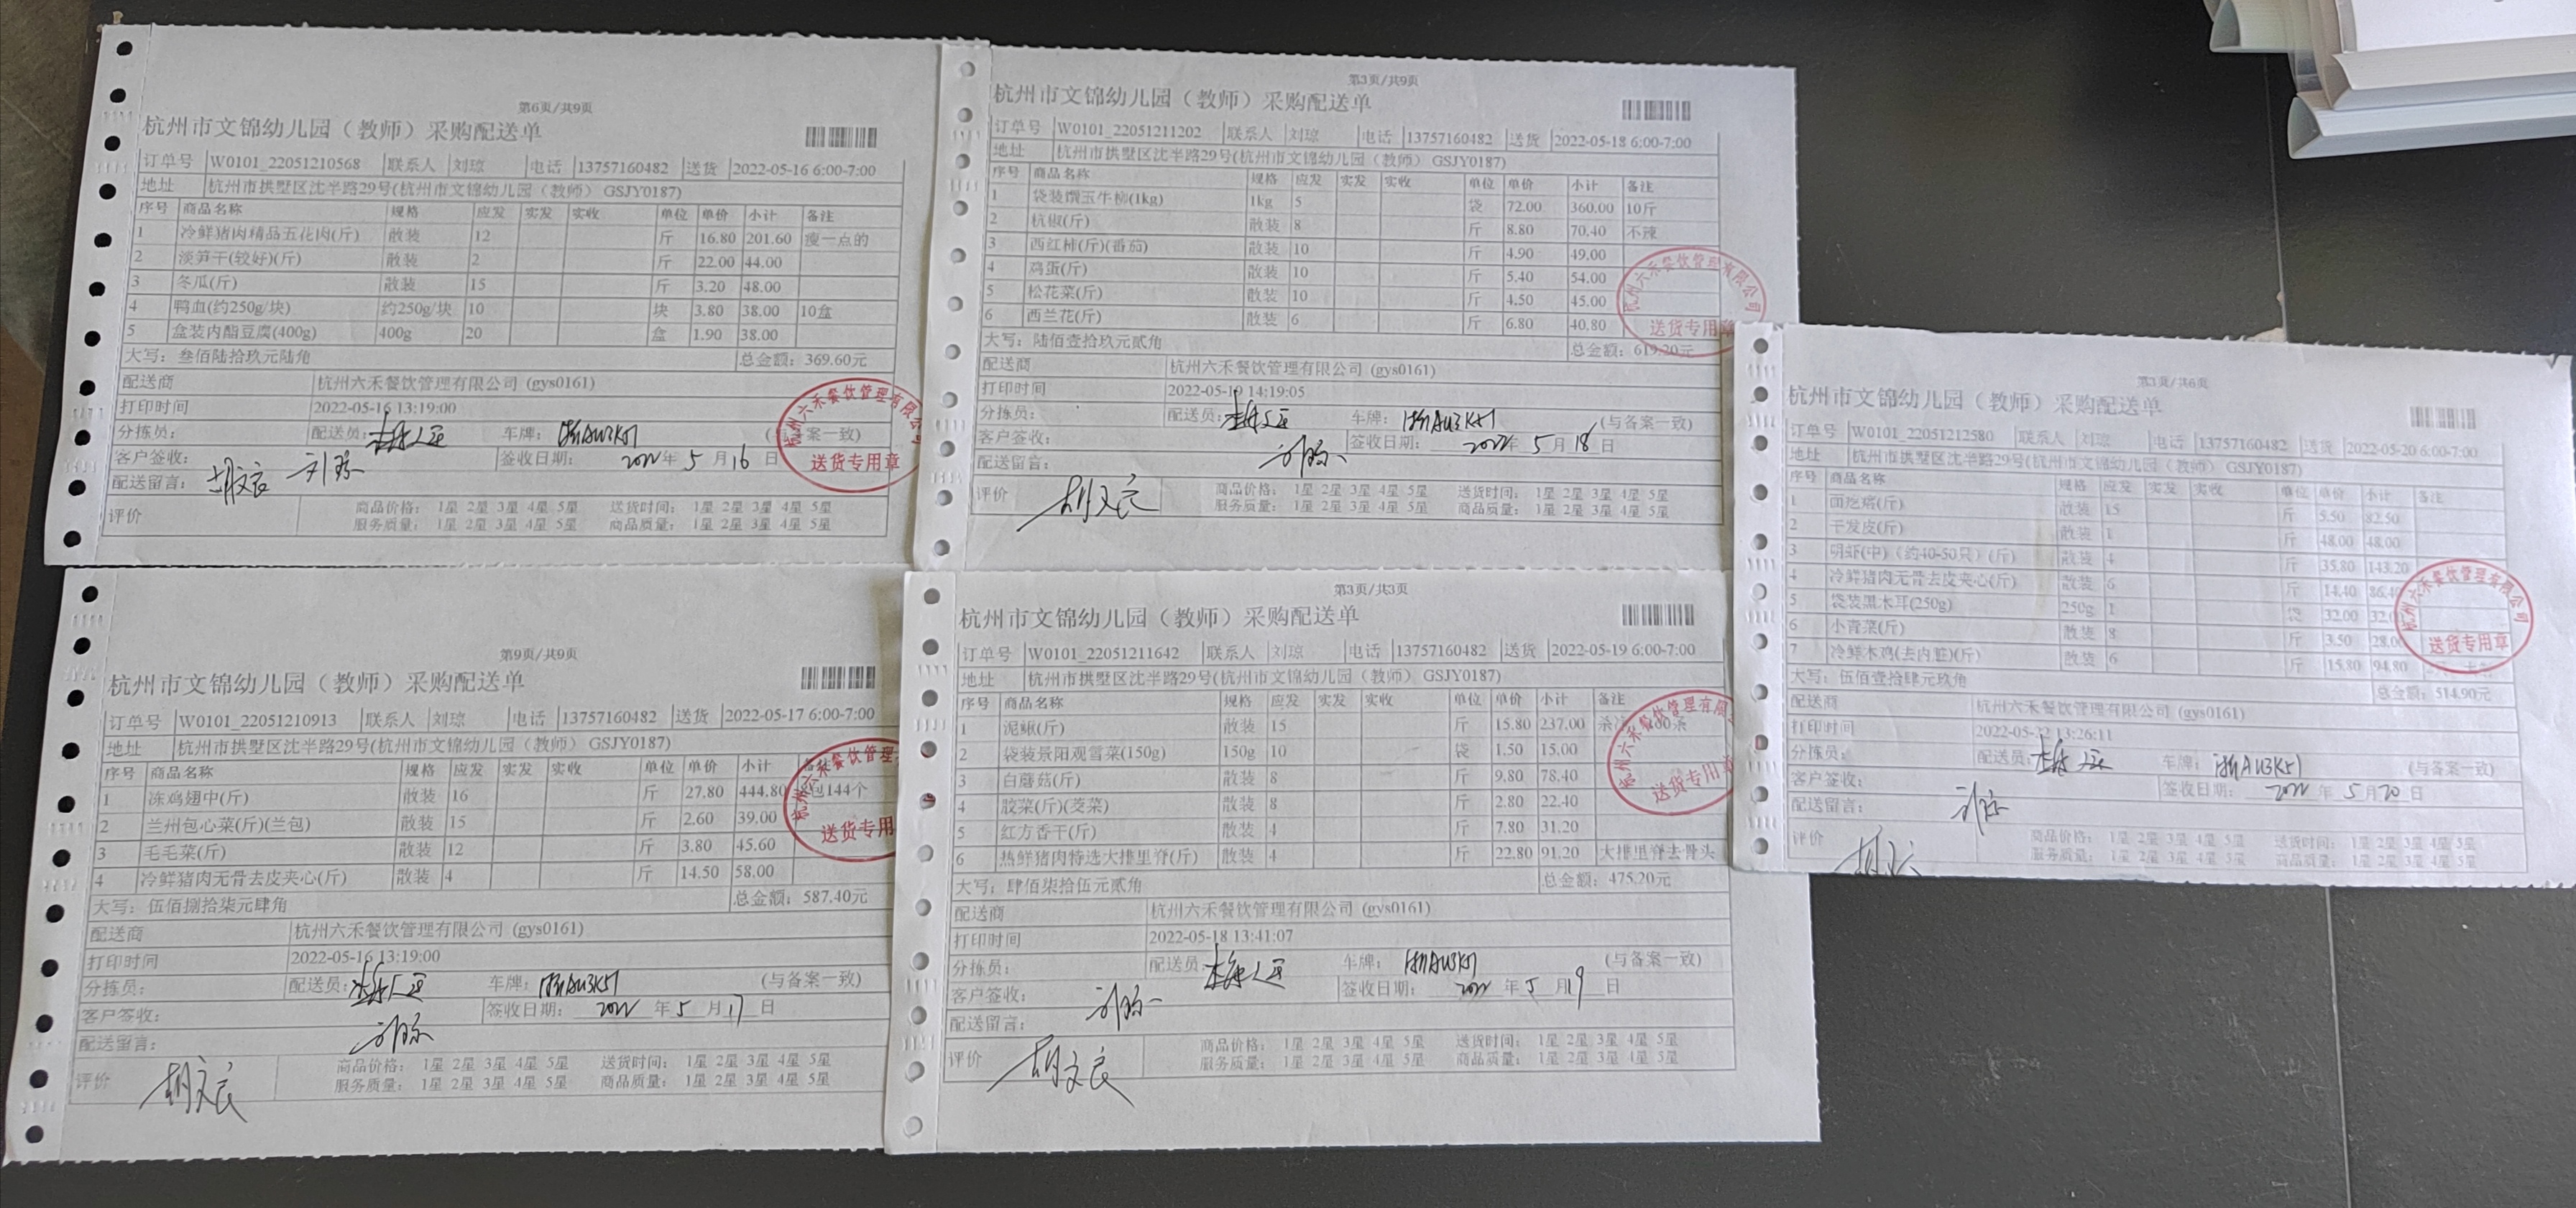 第6页/共9页
杭州市文锦幼儿园（教师）采购配送单
订单号 W0101_22051210568 联系人 刘琼 电话 13757160482 送货 2022-05-16 6:00-7:00
地址 杭州市拱墅区沈半路29号(杭州市文锦幼儿园（教师）GSJY0187)
序号 商品名称 规格 应发 实发 实收 单位 单价 小计 备注
1 冷鲜猪肉精品五花肉(斤) 散装 12 斤 16.80 201.60 瘦一点的
2 淡笋干(较好)(斤) 散装 2 斤 22.00 44.00
3 冬瓜(斤) 散装 15 斤 3.20 48.00
4 鸭血(约250g/块) 约250g/块 10 块 3.80 38.00 10盒
5 盒装内酯豆腐(400g) 400g 20 盒 1.90 38.00
大写：叁佰陆拾玖元陆角 总金额：369.60元
配送商 杭州六禾餐饮管理有限公司 (gys0161)
打印时间 2022-05-16 13:19:00
分拣员： 配送员： 车牌：浙AU3K51 (与备案一致)
客户签收： 刘琼 签收日期： 2022年 5月 16日
配送留言： 胡文良
评价 商品价格： 1星 2星 3星 4星 5星 送货时间： 1星 2星 3星 4星 5星
服务质量： 1星 2星 3星 4星 5星 商品质量： 1星 2星 3星 4星 5星
杭州六禾餐饮管理有限公司
送货专用章
第3页/共9页
杭州市文锦幼儿园（教师）采购配送单
订单号 W0101_22051211202 联系人 刘琼 电话 13757160482 送货 2022-05-18 6:00-7:00
地址 杭州市拱墅区沈半路29号(杭州市文锦幼儿园（教师）GSJY0187)
序号 商品名称 规格 应发 实发 实收 单位 单价 小计 备注
1 袋装馔玉牛柳(1kg) 1kg 5 袋 72.00 360.00 10斤
2 杭椒(斤) 散装 8 斤 8.80 70.40 不辣
3 西红柿(斤)(番茄) 散装 10 斤 4.90 49.00
4 鸡蛋(斤) 散装 10 斤 5.40 54.00
5 松花菜(斤) 散装 10 斤 4.50 45.00
6 西兰花(斤) 散装 6 斤 6.80 40.80
大写：陆佰壹拾玖元贰角 总金额：619.20元
配送商 杭州六禾餐饮管理有限公司 (gys0161)
打印时间 14:19:05
分拣员： 配送员： 车牌：浙AU3K51 (与备案一致)
客户签收： 刘琼 签收日期： 2022年 5月 18日
配送留言：
评价 胡文良 商品价格： 1星 2星 3星 4星 5星 送货时间： 1星 2星 3星 4星 5星
服务质量： 1星 2星 3星 4星 5星 商品质量： 1星 2星 3星 4星 5星
杭州六禾餐饮管理有限公司
送货专用章
第3页/共6页
杭州市文锦幼儿园（教师）采购配送单
订单号 W0101_22051212580 联系人 刘琼 电话 13757160482 送货 2022-05-20 6:00-7:00
地址 杭州市拱墅区沈半路29号(杭州市文锦幼儿园（教师）GSJY0187)
序号 商品名称 规格 应发 实发 实收 单位 单价 小计 备注
1 面疙瘩(斤) 散装 15 斤 5.50 82.50
2 干发皮(斤) 散装 1 斤 48.00 48.00
3 明虾(中)（约40-50只）(斤) 散装 4 斤 35.80 143.20
4 冷鲜猪肉无骨去皮夹心(斤) 散装 6 斤 14.40 86.40
5 袋装黑木耳(250g) 250g 1 袋 32.00 32.0
6 小青菜(斤) 散装 8 斤 3.50 28.00
7 冷鲜本鸡(去内脏)(斤) 散装 6 斤 15.80 94.80
大写：伍佰壹拾肆元玖角 总金额：514.90元
配送商 杭州六禾餐饮管理有限公司 (gys0161)
打印时间 13:26:11
分拣员： 配送员： 车牌：浙AU3K51 (与备案一致)
客户签收： 签收日期： 2022年 5月20日
配送留言： 刘琼
评价 胡文良 商品价格： 1星 2星 3星 4星 5星 送货时间： 1星 2星 3星 4星 5星
服务质量： 1星 2星 3星 4星 5星 商品质量： 1星 2星 3星 4星 5星
杭州六禾餐饮管理有限公司
送货专用章
第9页/共9页
杭州市文锦幼儿园（教师）采购配送单
订单号 W0101_22051210913 联系人 刘琼 电话 13757160482 送货 2022-05-17 6:00-7:00
地址 杭州市拱墅区沈半路29号(杭州市文锦幼儿园（教师）GSJY0187)
序号 商品名称 规格 应发 实发 实收 单位 单价 小计 备注
1 冻鸡翅中(斤) 散装 16 斤 27.80 444.80 包144个
2 兰州包心菜(斤)(兰包) 散装 15 斤 2.60 39.00
3 毛毛菜(斤) 散装 12 斤 3.80 45.60
4 冷鲜猪肉无骨去皮夹心(斤) 散装 4 斤 14.50 58.00
大写：伍佰捌拾柒元肆角 总金额：587.40元
配送商 杭州六禾餐饮管理有限公司 (gys0161)
打印时间 2022-05-16 13:19:00
分拣员： 配送员： 车牌：浙AU3K51 (与备案一致)
客户签收： 签收日期： 2022年 5月 17日
配送留言： 刘琼
评价 胡文良 商品价格： 1星 2星 3星 4星 5星 送货时间： 1星 2星 3星 4星 5星
服务质量： 1星 2星 3星 4星 5星 商品质量： 1星 2星 3星 4星 5星
六禾餐饮管理有
送货专用
第3页/共3页
杭州市文锦幼儿园（教师）采购配送单
订单号 W0101_22051211642 联系人 刘琼 电话 13757160482 送货 2022-05-19 6:00-7:00
地址 杭州市拱墅区沈半路29号(杭州市文锦幼儿园（教师）GSJY0187)
序号 商品名称 规格 应发 实发 实收 单位 单价 小计 备注
1 泥鳅(斤) 散装 15 斤 15.80 237.00 杀
2 袋装景阳观雪菜(150g) 150g 10 袋 1.50 15.00
3 白蘑菇(斤) 散装 8 斤 9.80 78.40
4 胶菜(斤)(茭菜) 散装 8 斤 2.80 22.40
5 红方香干(斤) 散装 4 斤 7.80 31.20
6 热鲜猪肉特选大排里脊(斤) 散装 4 斤 22.80 91.20 大排里脊去骨头
大写：肆佰柒拾伍元贰角 总金额：475.20元
配送商 杭州六禾餐饮管理有限公司 (gys0161)
打印时间 2022-05-18 13:41:07
分拣员： 配送员： 车牌：浙AU3K51 (与备案一致)
客户签收： 刘琼 签收日期： 2022年 5月19日
配送留言：
评价 胡文良 商品价格： 1星 2星 3星 4星 5星 送货时间： 1星 2星 3星 4星 5星
服务质量： 1星 2星 3星 4星 5星 商品质量： 1星 2星 3星 4星 5星
六禾餐饮管理有限
送货专用章